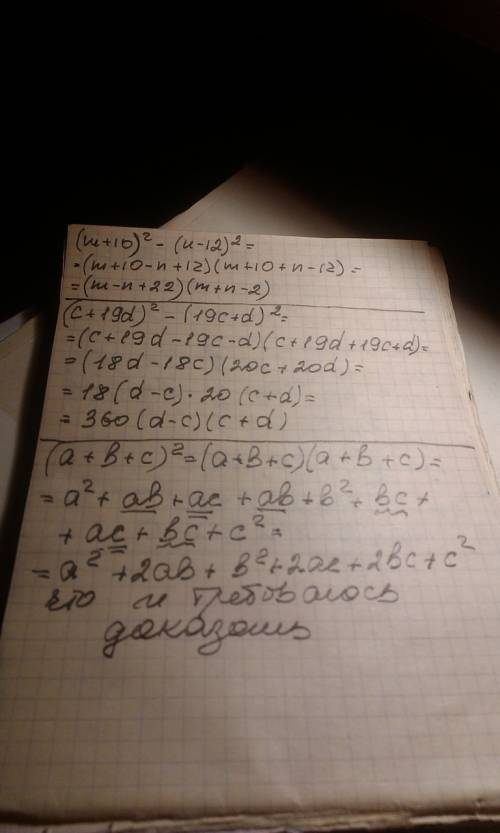 (m+10)² - (n-12)² =
= (m+10-n+12)(m+10+n-12) =
= (m-n+22)(m+n-2)
(c+19d)² - (19c+d)² =
= (c+19d-19c-d)(c+19d+19c+d) =
= (18d-18c)(20c+20d) =
= 18(d-c)·20(c+d) =
= 360(d-c)(c+d)
(a+b+c)² = (a+b+c)(a+b+c) =
= a² + ab + ac + ab + b² + bc +
+ ac + bc + c² =
= a² + 2ab + b² + 2ac + 2bc + c²
что и требовалось
доказать